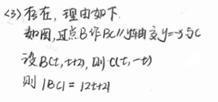 (3) 存在，理由如下
如图，过点B作BC//y轴交y=-x与C
设B(t, t+2)，则C(t, -t)
则 |BC| = |2t+2|